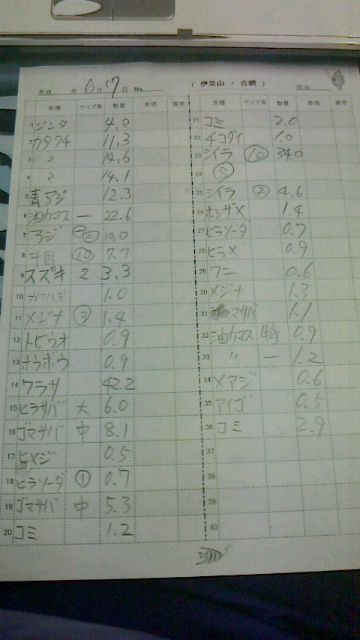 平成 年 6月17日 No.
(伊豆山・古網)
魚種 サイズ等 数量 単価 備考
1 ジンタ 4.0
2 カタクチ 11.3
3 〃 14.6
4 〃 14.1
5 青アジ 12.3
6 油カマス 一 22.6
7 アジ 10.0
8 平目 ⑩ 7.7
9 スズキ 2 3.3
10 カワハギ 1.0
11 メジナ ③ 1.4
12 トビウオ 0.9
13 ナラボウ 0.9
14 ワラサ 42.2
15 ヒラサバ 大 6.0
16 ゴマサバ 中 8.1
17 ヒメジ 0.5
18 ヒラソーダ ① 0.7
19 ゴマサバ 中 5.3
20 コミ 1.2
魚種 サイズ等 数量 単価 備考
21 コミ 2.0
22 チコダイ 1.0
23 シイラ 340
24
25 シイラ ② 4.6
26 ホシザメ 1.4
27 ヒラソーダ 0.7
28 ヒラメ 0.9
29 ワニ 0.6
30 メジナ 1.3
31 マサバ 1.1
32 油カマス 0.9
33 〃 一 1.2
34 メアジ 0.6
35 アイゴ 0.5
36 コミ 2.9
37
38
39
40